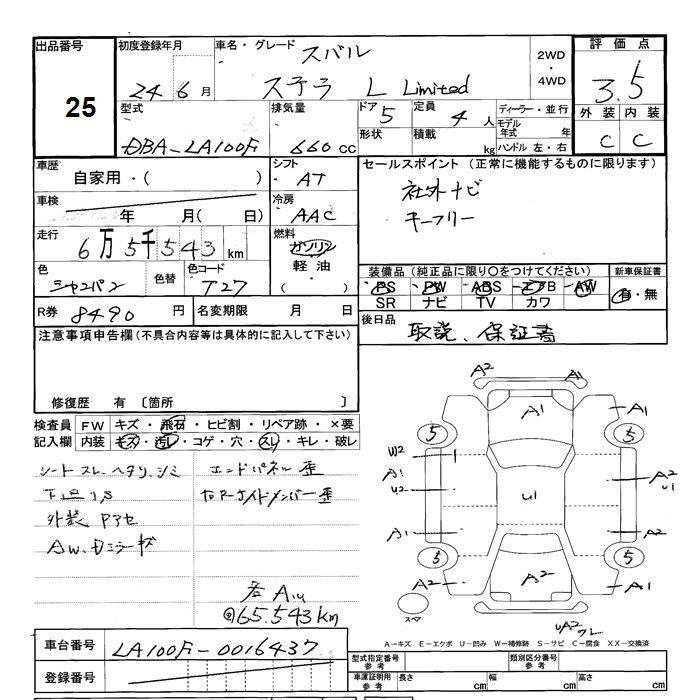 出品番号
25
初度登録年月
24 6 月
車名・グレード
スバル
ステラ L Limited
2WD
・
4WD
評価点
3.5
外装 内装
C C
型式
DBA-LA100F
排気量
660 cc
ドア 5
定員 4 人
ディーラー・並行
モデル年式 年
形状
積載 kg
ハンドル 左・右
車歴
自家用・( )
シフト
AT
セールスポイント (正常に機能するものに限ります)
社外ナビ
キーフリー
車検
年 月( 日)
冷房
AAC
走行
6万5千543 km
燃料
ガソリン
軽油・
( )
色
シャンパン
色替
色コード
T27
装備品 (純正品に限り○をつけてください)
PS PW ABS エアB AW
SR ナビ TV カワ
新車保証書
有・無
R券 8490 円
名変期限 月 日
後日品
取説、保証書
注意事項申告欄(不具合内容等は具体的に記入して下さい)
修復歴 有 〔箇所 〕
検査員記入欄
FW キズ・飛石・ヒビ割・リペア跡・×要
内装 キズ・汚レ・コゲ・穴・スレ・キレ・破レ
シートスレ、ヘタリ、シミ
下回りS
外装 Pアセ
AW、Dミラーキズ
エンドパネル歪
右Rサイドメンバー歪
A1U
@65.543km
A2 A1
A1 A1
5 5
W2
A1
U2
U1
A2
U1
A1 A2
5 5
A2 A2 A1
スペア
UA2
ワレ
A-キズ E-エクボ U-凹み W-補修跡 S-サビ C-腐食 XX-交換済
車台番号 LA100F-0016437
登録番号
型式指定番号
参考
類別区分番号
参考
車庫証明用
参考
長さ cm 幅 cm 高さ cm